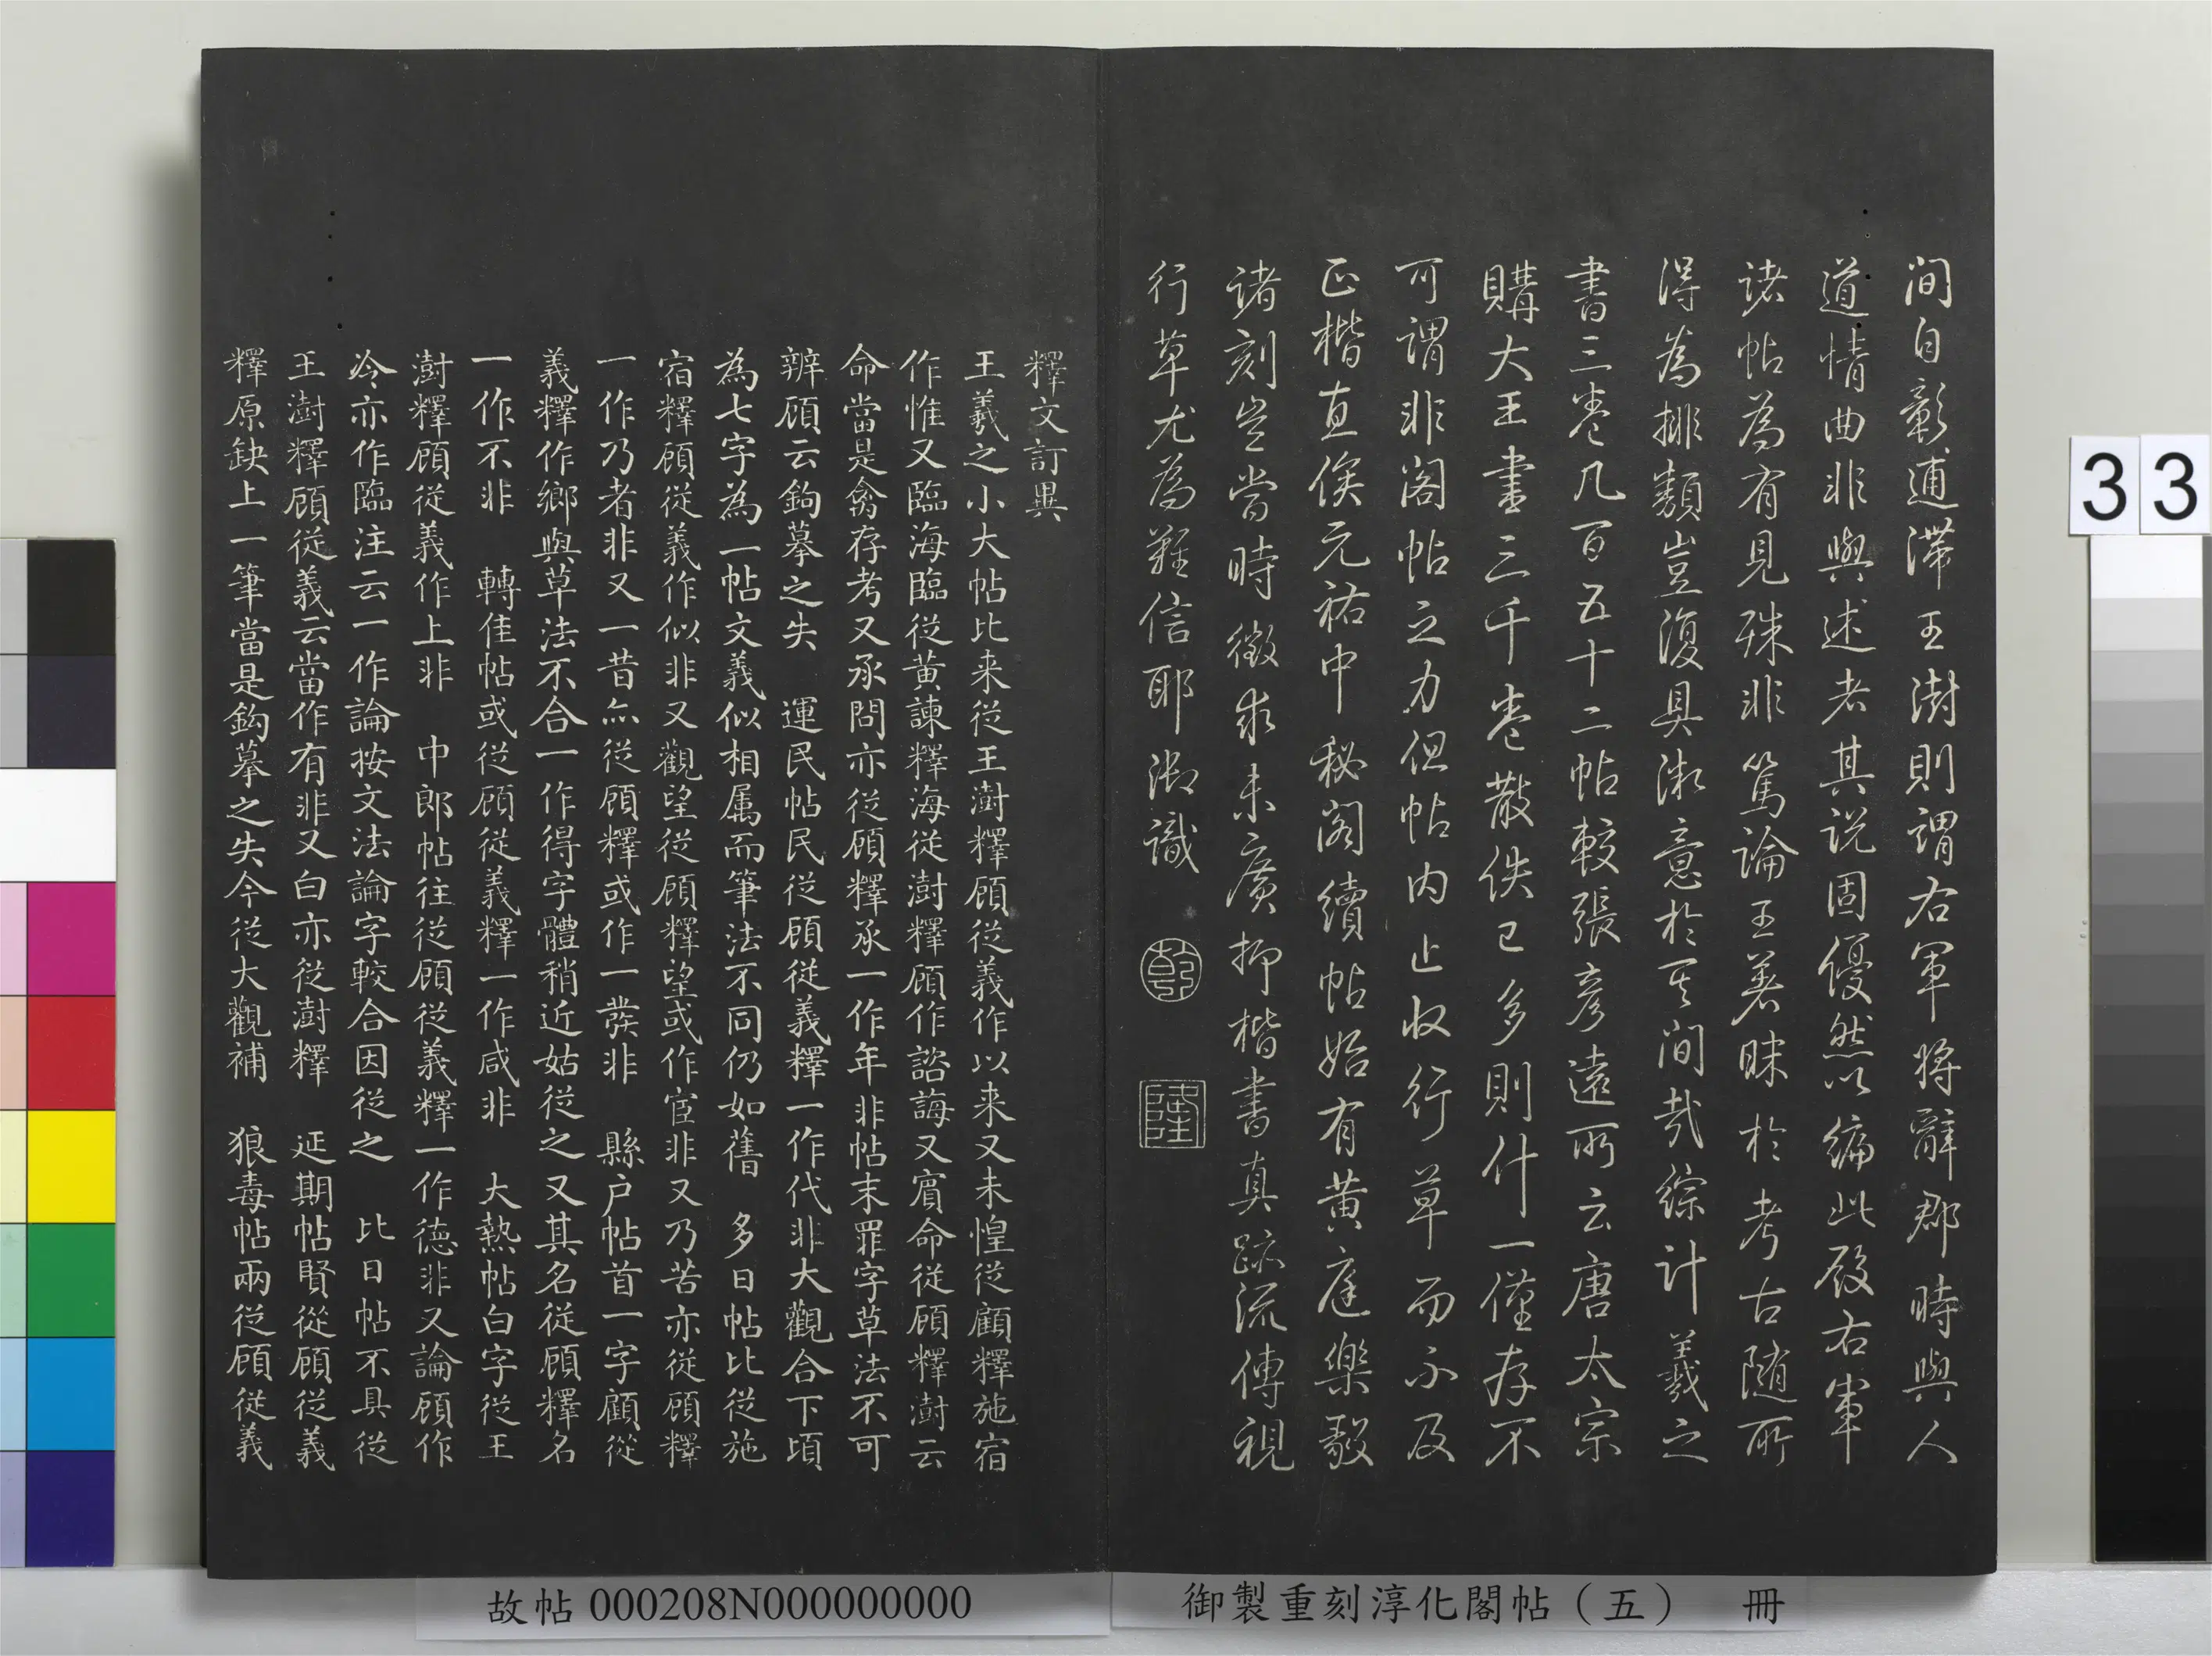 間自彰逋滯王澍則謂右軍將辭郡時與人
道情曲非與述老其說固優然以編此殿右軍
諸帖為有見殊非篤論王著昧於考古隨所
得為排類豈復具深意於其間哉綜計羲之
書三卷凡百五十二帖較張彥遠所云唐太宗
購大王書三千卷散佚已多則什一僅存不
可謂非閣帖之力但帖內止收行草而不及
正楷直俟元祐中秘閣續帖始有黃庭樂毅
諸刻豈當時徵求未廣抑楷書真跡流傳視
行草尤為難信耶御識
乾
隆
釋文訂異
王羲之小大帖比来從王澍釋顧從義作以来又未惶從顧釋施宿
作惟又臨海臨從黃諫釋海從澍釋顧作諮誨又賓命從顧釋澍云
命當是禽存考又承問亦從顧釋承一作年非帖末罪字草法不可
辨顧云鉤摹之失 運民帖民從顧從義釋一作代非大觀合下頃
為七字為一帖文義似相属而筆法不同仍如舊 多日帖比從施
宿釋顧從義作似非又觀望從顧釋望或作宦非又乃苦亦從顧釋
一作乃者非又一昔亦從顧釋或作一發非 縣户帖首一字顧從
義釋作鄉與草法不合一作得字體稍近姑從之又其名從顧釋名
一作不非 轉佳帖或從顧從義釋一作咸非 大熱帖白字從王
澍釋顧從義作上非 中郎帖往從顧從義釋一作德非又論顧作
冷亦作臨注云一作論按文法論字較合因從之 比日帖不具從
王澍釋顧從義云當作有非又白亦從澍釋 延期帖賢從顧從義
釋原缺上一筆當是鈎摹之失今從大觀補 狼毒帖兩從顧從義
33
故帖 000208N000000000
御製重刻淳化閣帖（五） 冊